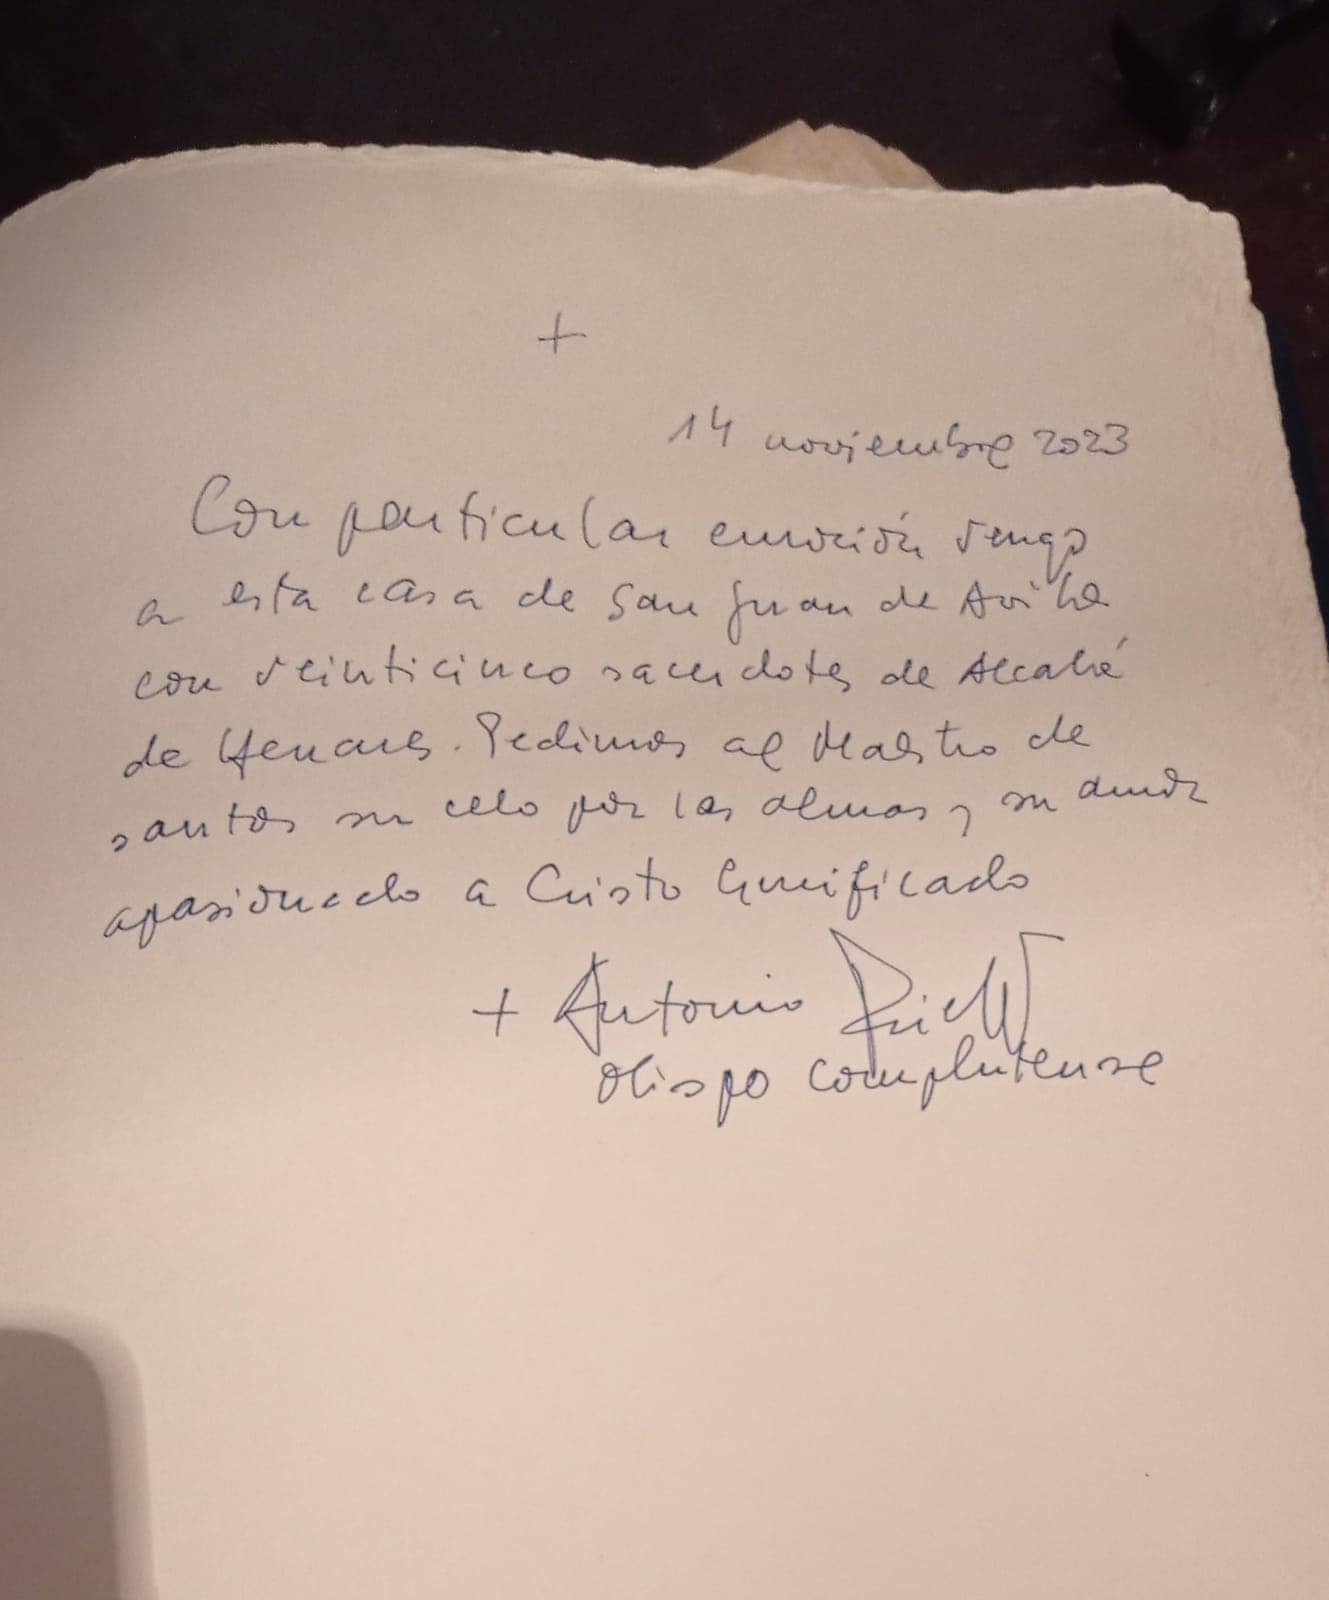 +
14 noviembre 2023
Con particular emoción vengo
a esta casa de San Juan de Avila
con veinticinco sacerdotes de Alcalá
de Henares. Pedimos al Maestro de
santos su celo por las almas y su amor
apasionado a Cristo Crucificado
+ Antonio Prieto
Obispo Complutense